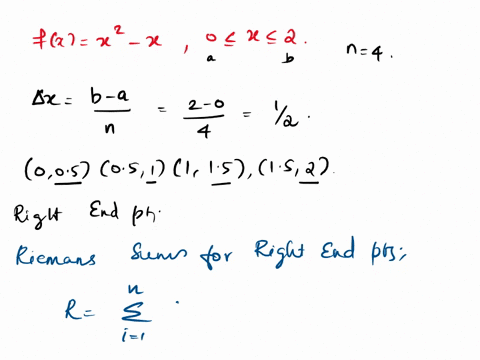 f(x) = x² - x , 0 ≤ x ≤ 2. n=4.
a b
Δx = b-a/n = 2-0/4 = 1/2.
(0,0.5) (0.5,1) (1,1.5), (1.5,2)
Right End pt.
Riemans Sums for Right End pts;
R = n∑i=1